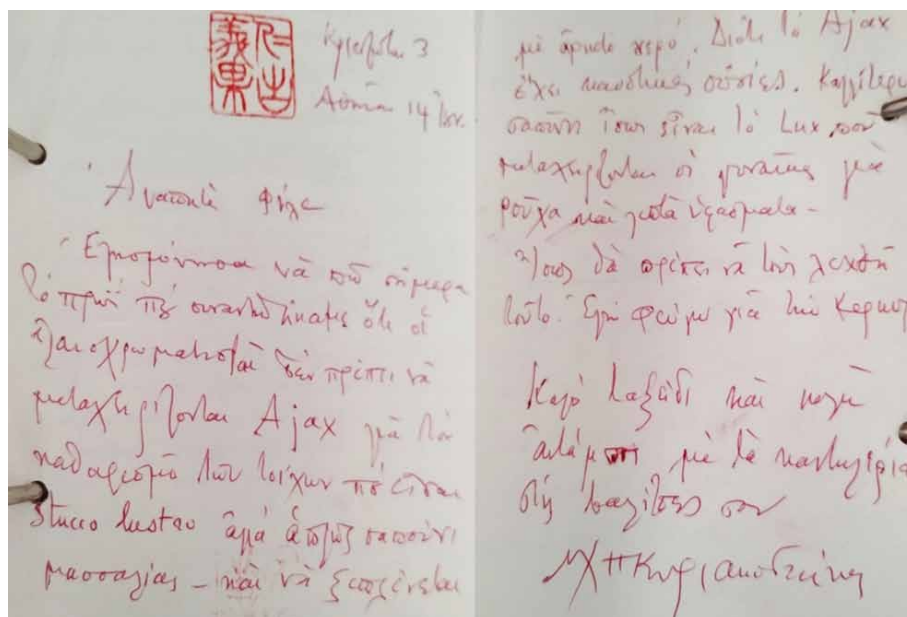 Κριεζώτου 3
Ἀθῆναι 14
Ἀγαπητὲ φίλε
Ἐλησμόνησα νὰ πῶ σήμερα
τὸ πρωὶ ποὺ συναντηθήκαμε ὅτι οἱ
ἐλαιοχρωματισταὶ δὲν πρέπει νὰ
μεταχειρίζονται Ajax γιὰ τὸν
καθαρισμὸ τῶν τοίχων ποὺ εἶναι
Stucco lustro ἀλλὰ ἁπλῶς σαπούνι
μασσαλίας – καὶ νὰ ξεπλένεται
μὲ ἄφθονο νερό. Διότι τὸ Ajax
ἔχει καυστικὲς οὐσίες. Καλλίτερο
σαπούνι ἴσως εἶναι τὸ Lux ποὺ
μεταχειρίζονται οἱ γυναῖκες γιὰ
ροῦχα καὶ λεπτὰ ὑφάσματα –
Ἴσως θὰ πρέπει νὰ τοὺς λεχθῆ
τοῦτο. Ἐγὼ φεύγω γιὰ τὴν
Καλὸ ταξίδι καὶ καλὴ
μὲ τὰ
στὶς βαλίτσες σου